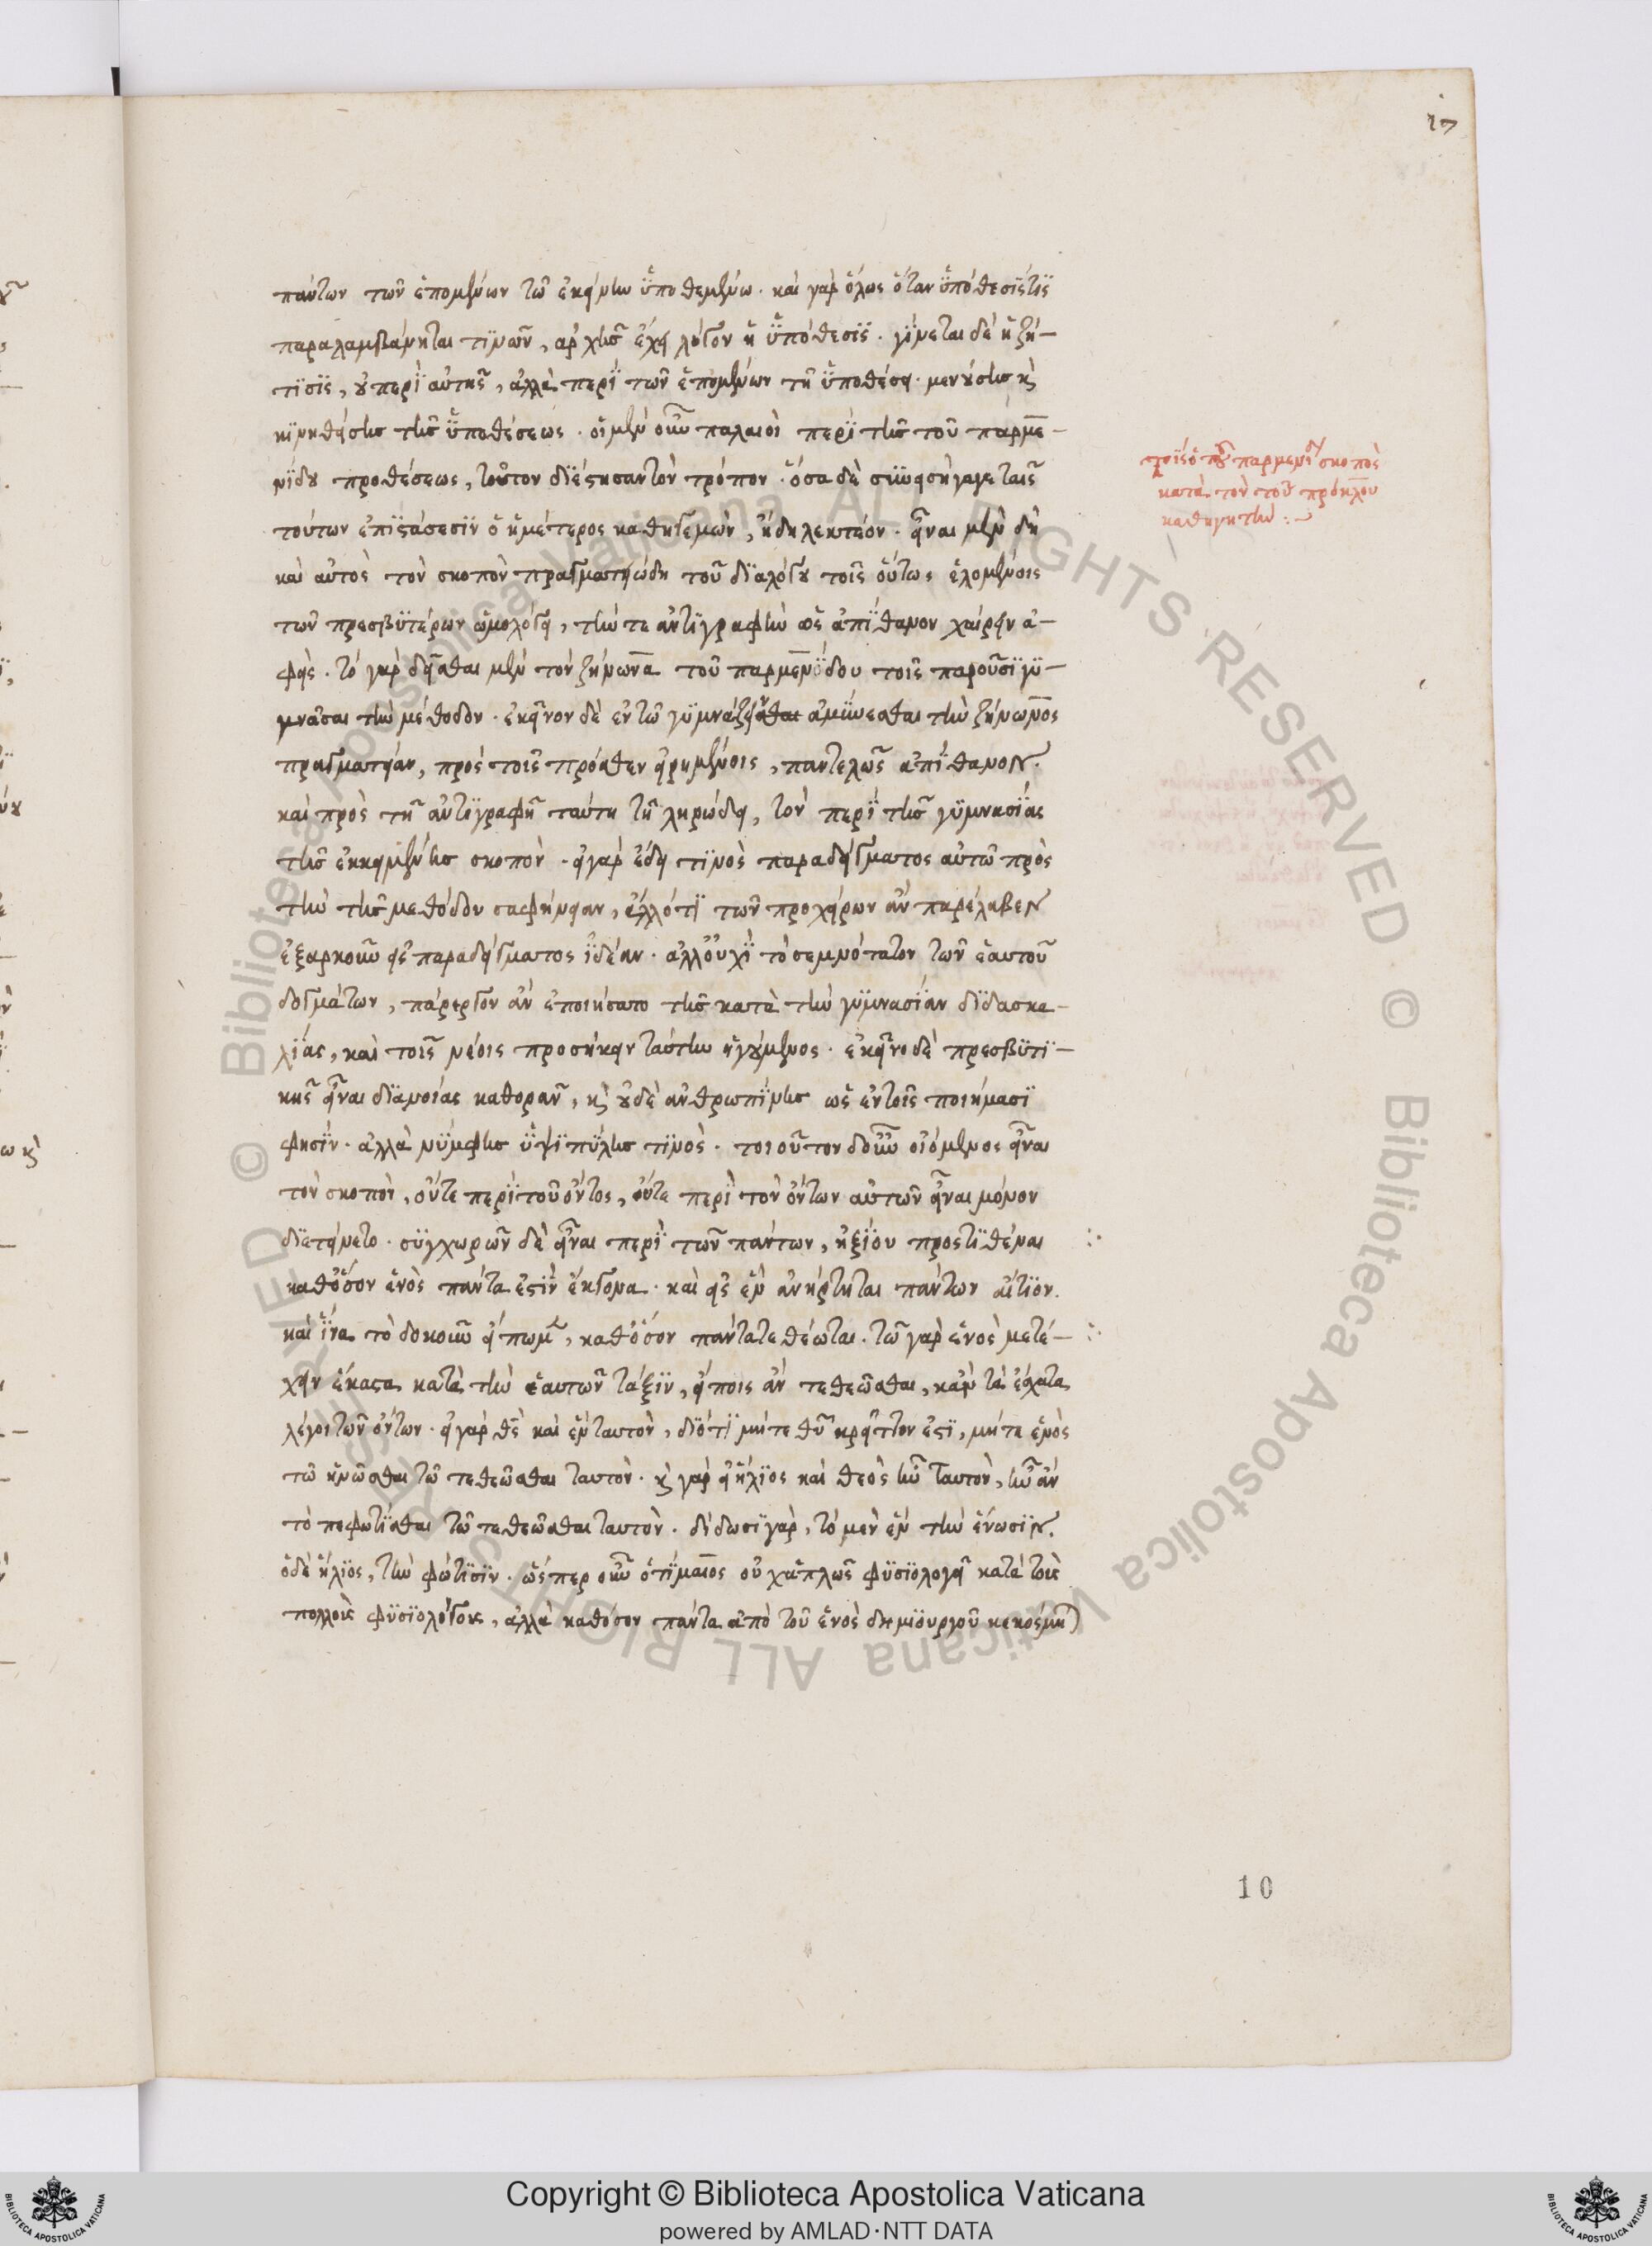 ιϛ
πάντων τῶν ἑπομένων τῷ ἐκείνην ὑποθεμένῳ. καὶ γὰρ ὅλως ὅταν ὑπόθεσίς τις
παραλαμβάνηται τινῶν, ἀρχῆς ἔχει λόγον ἡ ὑπόθεσις. γίνεται δὲ ἡ ζή-
τισις, οὐ περὶ αὐτῆς, ἀλλὰ περὶ τῶν ἑπομένων τῇ ὑποθέσει. μενούσης κ(αὶ)
κινηθείσης τῆς ὑποθέσεως. οἱ μὲν οὖν παλαιοὶ περὶ τῆς τοῦ παρμε-
νίδου προθέσεως, τοῦτον διέστησαν τὸν τρόπον. ὅσα δὲ συνεισήγαγε ταῖς
τούτων ἐπιστάσεσιν ὁ ἡμέτερος καθηγεμὼν, ἤδη λεκτέον. εἶναι μὲν δὴ
καὶ αὐτὸς τὸν σκοπὸν πραγματιώδη τοῦ διαλόγου τοῖς οὕτως ἑλομένοις
τῶν πρεσβυτέρων ὡμολόγει, τήν τε ἀντιγραφὴν ὡς ἀπίθανον χαίρειν ἀ-
φείς. τὸ γὰρ δεῖσθαι μὲν τὸν ζήνωνα τοῦ παρμενίδου τοῖς παροῦσι γυ-
μνᾶσαι τὴν μέθοδον. ἐκεῖνον δὲ ἐν τῷ γυμνάζεσθαι ἀμύνεσθαι τὴν ζήνωνος
πραγματείαν, πρὸς τοῖς πρόσθεν εἰρημένοις, παντελῶς ἀπίθανον.
καὶ πρὸς τῇ ἀντιγραφῇ ταύτῃ τῇ ληρώδει, τὸν περὶ τῆς γυμνασίας
τῆς ἐκκειμένης σκοπὸν. εἰ γὰρ ἔδει τινὸς παραδείγματος αὐτῷ πρὸς
τὴν τῆς μεθόδου σαφήνειαν, ἄλλό τι τῶν προχείρων ἂν παρέλαβεν
ἐξαρκοῦν εἰς παραδείγματος ἰδέαν. ἀλλοὐχὶ τὸ σεμνότατον τῶν ἑαυτοῦ
δογμάτων, πάρεργον ἂν ἐποιήσατο τῆς κατὰ τὴν γυμνασίαν διδασκα-
λίας, καὶ τοῖς νέοις προσήκειν ταύτην ἡγούμενος. ἐκεῖνο δὲ πρεσβυτι-
κῆς εἶναι διανοίας καθορᾶν, κ(αὶ) οὐδὲ ἀνθρωπίνης ὡς ἐν τοῖς ποιήμασί
φησίν. ἀλλὰ νύμφης ὑψιπύλης τινὸς. τοιοῦτον δοὖν οἰόμενος εἶναι
τὸν σκοπὸν, οὔτε περὶ τοῦ ὄντος, οὔτε περὶ τὸν ὄντων αὐτῶν εἶναι μόνον
διετείνετο. συγχωρῶν δὲ εἶναι περὶ τῶν πάντων, ἠξίου προστιθέναι
καθὅσον ἑνὸς πάντα ἐστὶν ἔκγονα. καὶ εἰς ἓν ἀνήρτηται πάντων αἴτιον.
καὶ ἵνα τὸ δοκοῦν εἴπωμεν, καθὅσον πάντα τεθέωται. τῷ γὰρ ἑνὸς μετέ-
χειν ἕκαστα κατὰ τὴν ἑαυτῶν τάξιν, εἴποις ἂν τεθεῶσθαι, κἂν τὰ ἔσχατα
λέγοι τῶν ὄντων. εἰ γὰρ θς καὶ ἓν ταυτὸν, διότι μήτε θυ κρεῖττον ἐστι, μήτε ἑνὸς
τῷ ἡνῶσθαι τῷ τεθεῶσθαι ταυτὸν. κ(αὶ) γὰρ εἰ ἥλιος καὶ θεὸς ἦν ταυτὸν, ἦν ἂν
τὸ πεφωτίσθαι τῷ τεθεῶσθαι ταυτὸν. δίδωσι γὰρ, τὸ μὲν ἓν τὴν ἕνωσιν.
ὁ δὲ ἥλιος, τὴν φώτισιν. ὥσπερ οὖν ὁ τίμαιος οὐχ ἁπλῶς φυσιολογεῖ κατὰ τοὺς
πολλοὺς φυσιολόγους, ἀλλὰ καθόσον πάντα ἀπὸ τοῦ ἑνὸς δημιουργοῦ κεκόσμη(ται)
ποῖος ὁ τοῦ παρμενίδ(ου) σκοπὸς
κατὰ τὸν τοῦ πρόκλου
καθηγητήν :
10
© Biblioteca Apostolica Vaticana ALL RIGHTS RESERVED © Biblioteca Apostolica Vaticana ALL RIGHTS RESERVED
Copyright © Biblioteca Apostolica Vaticana
powered by AMLAD·NTT DATA
BIBLIOTECA APOSTOLICA VATICANA
BIBLIOTECA APOSTOLICA VATICANA